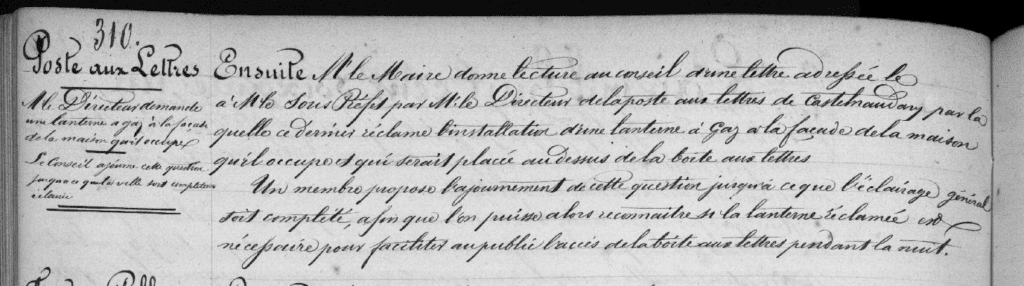 310.
Poste aux Lettres
M. le Directeur demande
une lanterne a gaz à la façade
de la maison qu'il occupe
Le Conseil ajourne cette question
jusqu'a ce que la ville soit complètem
éclairée
Ensuite Mr le Maire donne lecture au conseil d'une lettre adressée le
à M. le Sous Préfet par M. le Directeur de la poste aux lettres de Castelnaudary par la
quelle ce dernier réclame l'installation d'une lanterne à Gaz a la façade de la maison
qu'il occupe et qui serait placée au dessus de la boîte aux lettres
Un membre propose l'ajournement de cette question jusqu'à ce que l'éclairage général
soit complété, afin que l'on puisse alors reconnaitre si la lanterne réclamée est
nécessaire pour faciliter au public l'accès de la boîte aux lettres pendant la nuit.